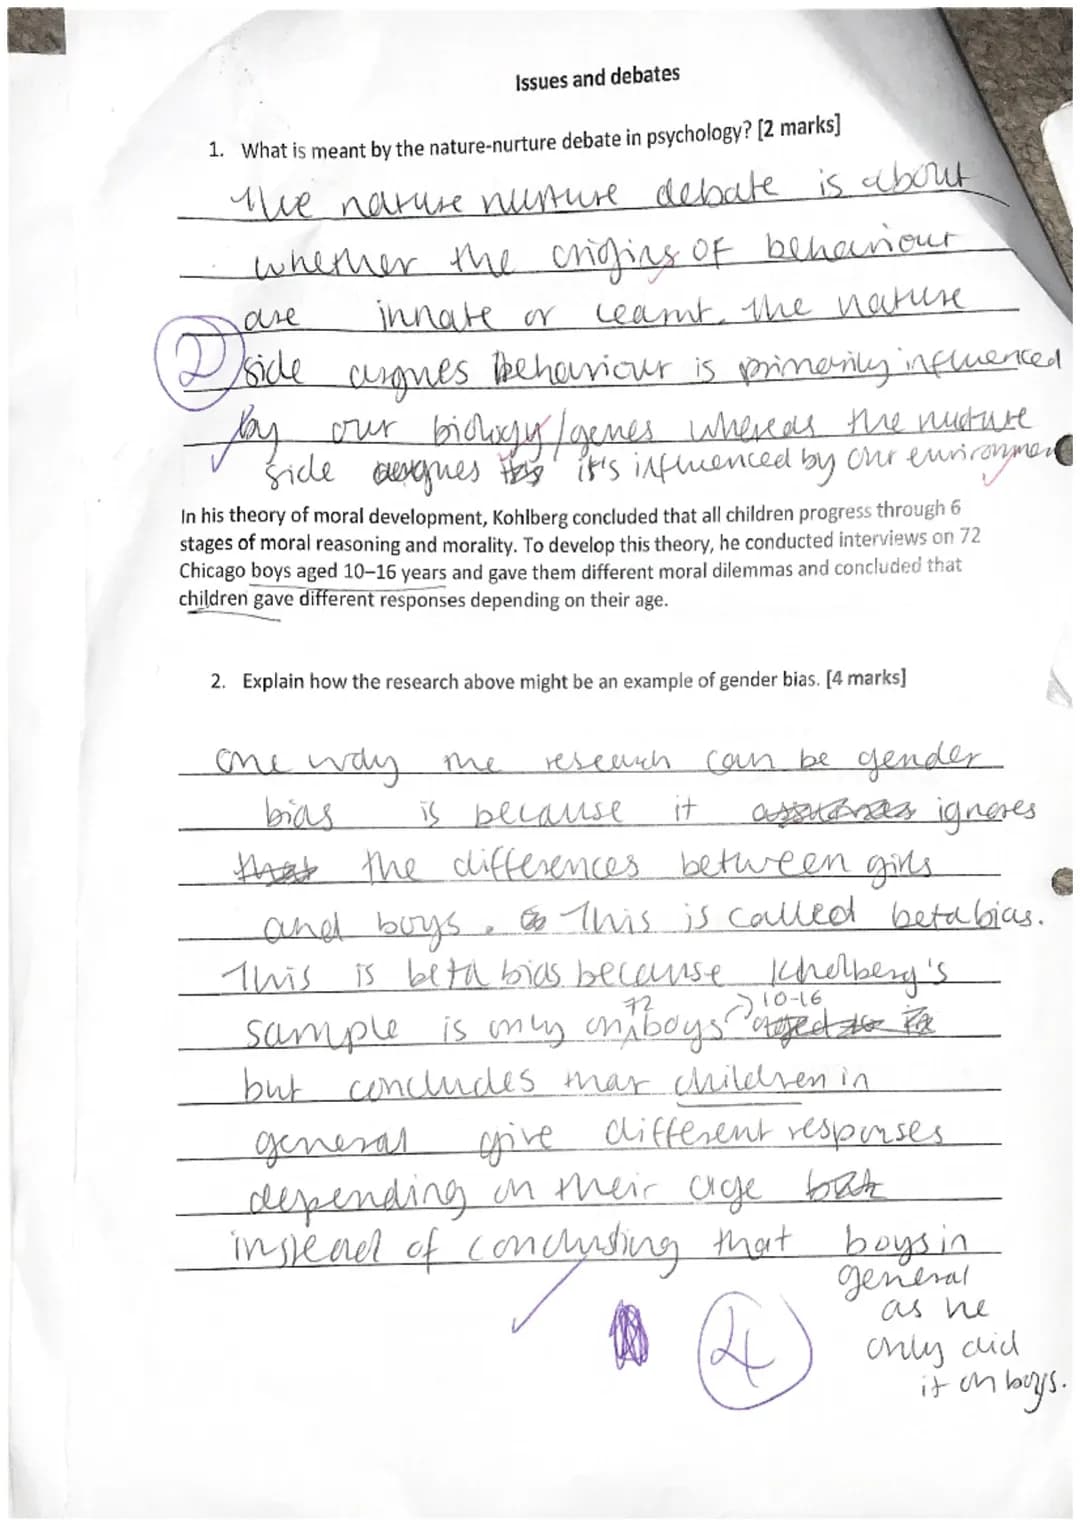 Issues and debates
1. What is meant by the nature-nurture debate in psychology? [2 marks]
The nature nurture debate is about
whether the origins of behaviour
are innate or learnt. The nature
2 side argues behaviour is primarily influenced
by our biology/genes whereas the nurture
side argues it's influenced by our environment
In his theory of moral development, Kohlberg concluded that all children progress through 6
stages of moral reasoning and morality. To develop this theory, he conducted interviews on 72
Chicago boys aged 10–16 years and gave them different moral dilemmas and concluded that
children gave different responses depending on their age.
2. Explain how the research above might be an example of gender bias. [4 marks]
One way the research can be gender
bias is because it ignores
the differences between girls
and boys. This is called beta bias.
This is beta bias because Kholberg's
72 10-16
sample is only on boys aged
but concludes that children in
general give different responses
depending on their age
instead of concluding that boys in
general
as he
4 only did
it on boys.